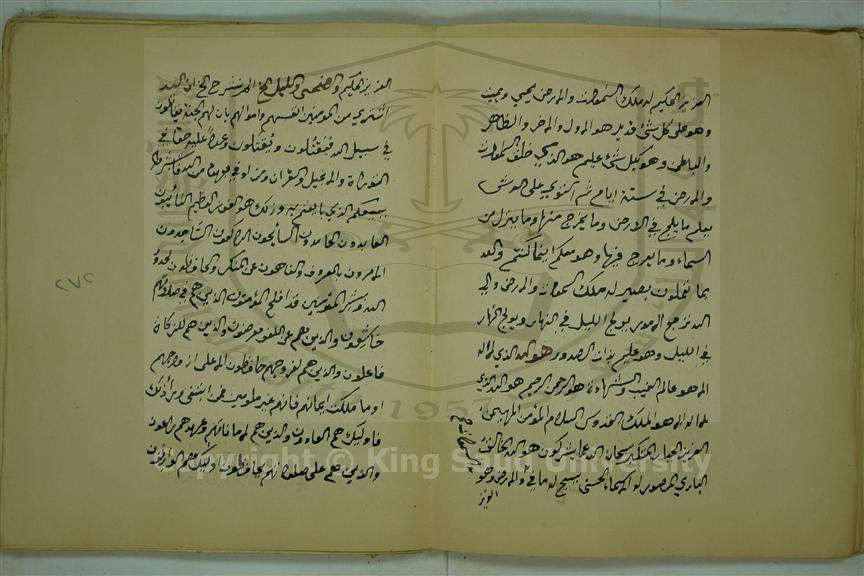 العزيز الحكيم له ملك السموات والارض يحيي ويميت
وهو على كل شئ قدير هو الاول والاخر والظاهر
والباطن وهو بكل شئ عليم هو الذي خلق السموات
والارض في ستة ايام ثم استوى على العرش
يعلم ما يلج في الارض وما يخرج منها وما ينزل من
السماء وما يعرج فيها وهو معكم اينما كنتم والله
بما تعملون بصير له ملك السموات والارض والى
الله ترجع الامور يولج الليل في النهار ويولج النهار
في الليل وهو عليم بذات الصدور هو الله الذي لا اله
الا هو عالم الغيب والشهادة هو الرحمن الرحيم هو الله الذي
لا اله الا هو الملك القدوس السلام المؤمن المهيمن
العزيز الجبار المتكبر سبحان الله عما يشركون هو الله الخالق
الباري المصور له الاسماء الحسنى يسبح له ما في والارض وهو
السموات
العزيز
العزيز الحكيم والضحى والليل الخ الم نشرح الخ ان الله
اشترى من المومنين انفسهم واموالهم بان لهم الجنة يقاتلون
في سبيل الله فيقتلون ويقتلون وعدا عليه حقا في
التوراة والانجيل والقران ومن اوفى بعهده من الله فاستبشروا
ببيعكم الذي بايعتم به وذلك هو الفوز العظيم التائبون
العابدون الحامدون السائحون الراكعون الساجدون
الامرون بالمعروف والناهون عن المنكر والحافظون لحدود
الله وبشر المؤمنين قد افلح المؤمنون الذين هم في صلاتهم
خاشعون والذين هم عن اللغو معرضون والذين هم للزكاة
فاعلون والذين هم لفروجهم حافظون الا على ازواجهم
او ما ملكت ايمانهم فانهم غير ملومين فمن ابتغى وراء ذلك
فاوليك هم العادون والذين هم لاماناتهم وعهدهم راعون
والذين هم على صلواتهم يحافظون اوليك هم الوارثون
٢٧٢
1957
Copyright © King Saud University